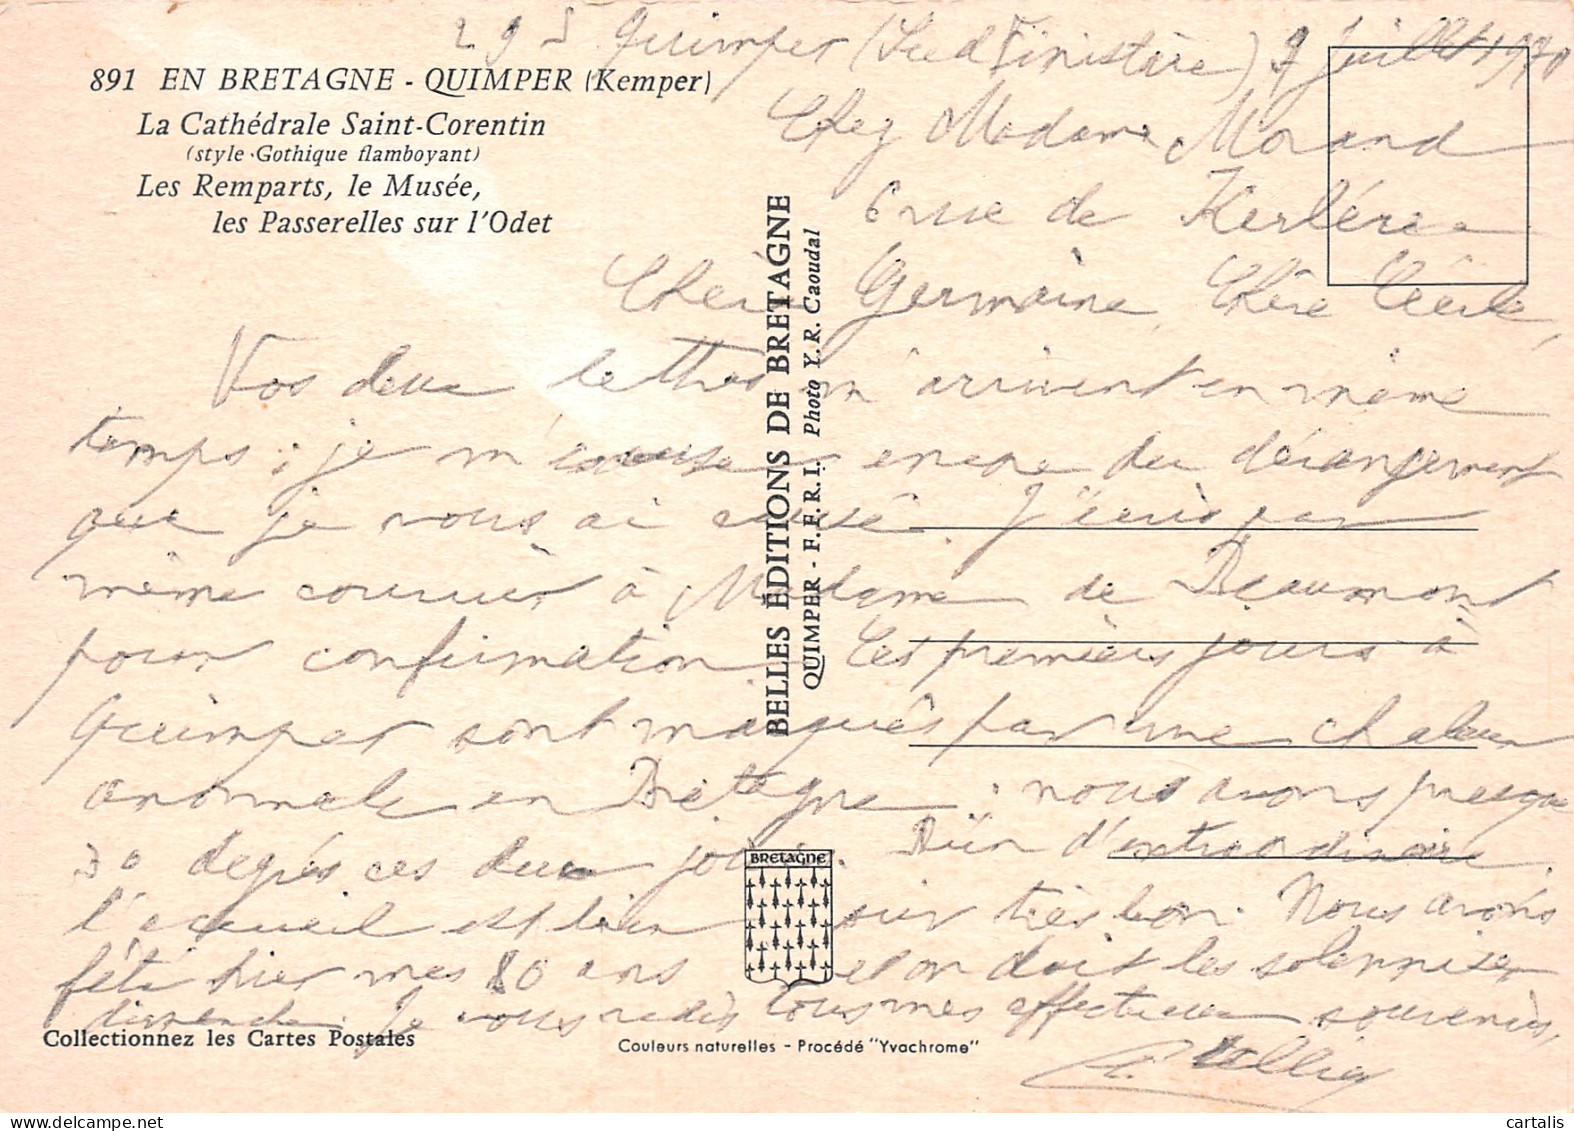 29 S Quimper (Sud Finistère) 9 juillet 1970
891 EN BRETAGNE - QUIMPER (Kemper)
La Cathédrale Saint-Corentin
(style Gothique flamboyant)
Les Remparts, le Musée,
les Passerelles sur l'Odet
Chez Madame Morand
6 rue de Kerlérec
Chère Germaine, Chère Cécile,
Vos deux lettres m'arrivent en même
temps ; je m'excuse encore du dérangement
que je vous ai causé. J'écris par
même courrier à Madame de Beaumont
pour confirmation. Les premiers jours à
Quimper sont marqués par une chaleur
anormale en Bretagne : nous avons presque
30 degrés ces deux jours. Rien d'extraordinaire.
l'accueil est bien sûr très bon. Nous avons
fêté hier mes 80 ans et on doit les solenniser
dimanche. Je vous redis tous mes affectueux souvenirs,
BELLES ÉDITIONS DE BRETAGNE
QUIMPER - F.F.R.I. Photo Y.R. Caoudal
BRETAGNE
Collectionnez les Cartes Postales
Couleurs naturelles - Procédé "Yvachrome"
cartalis